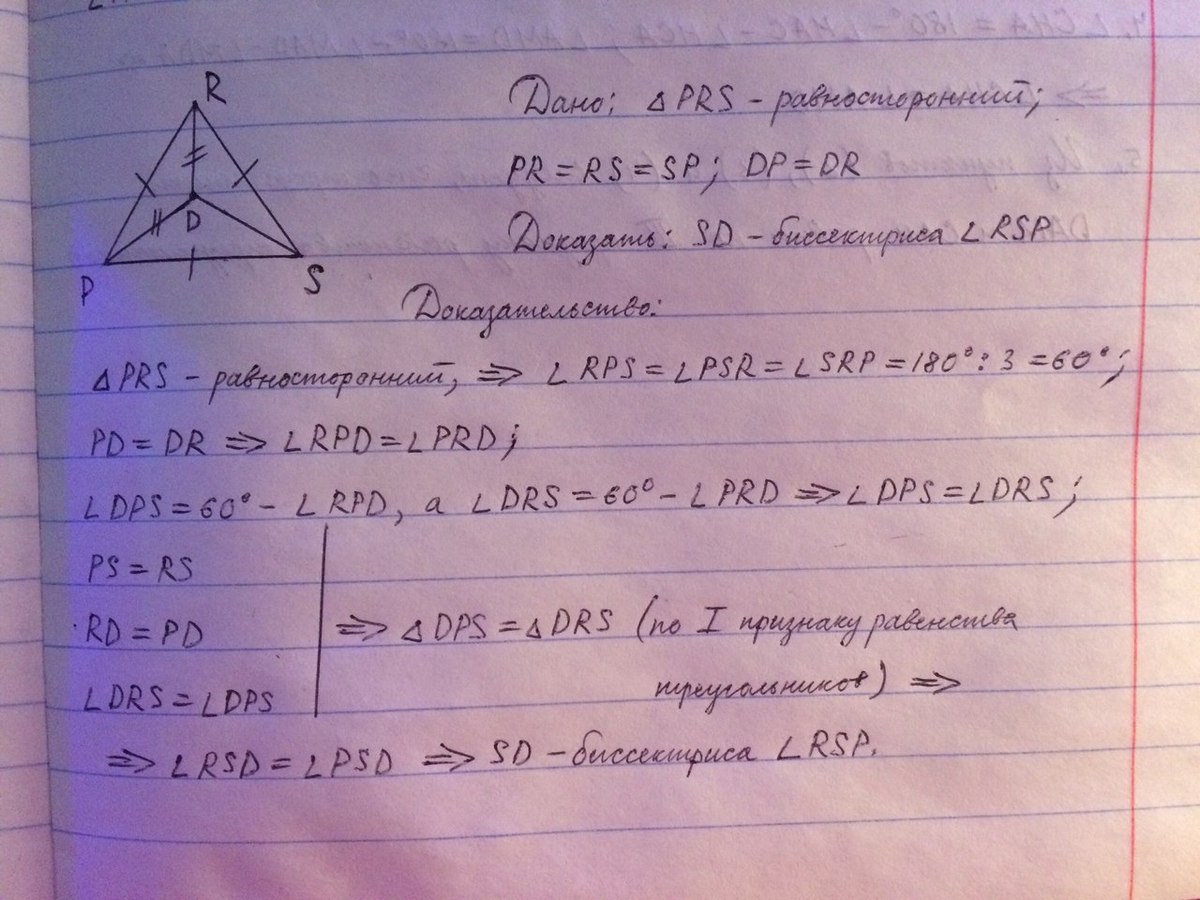 R
D
P
S
Дано: △PRS - равносторонний;
PR = RS = SP; DP = DR
Доказать: SD - биссектриса ∠RSP
Доказательство:
△PRS - равносторонний, ⇒ ∠RPS = ∠PSR = ∠SRP = 180° : 3 = 60°;
PD = DR ⇒ ∠RPD = ∠PRD;
∠DPS = 60° - ∠RPD, а ∠DRS = 60° - ∠PRD ⇒ ∠DPS = ∠DRS;
PS = RS
RD = PD
∠DRS = ∠DPS
⇒ △DPS = △DRS (по I признаку равенства
треугольников) ⇒
⇒ ∠RSD = ∠PSD ⇒ SD - биссектриса ∠RSP.